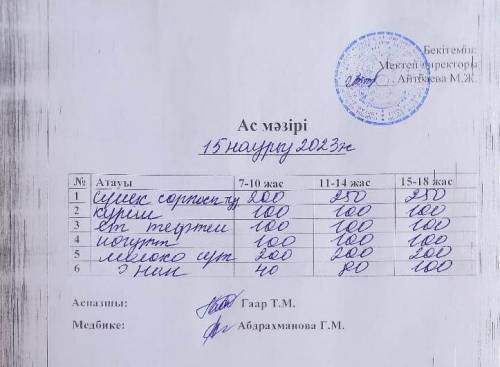 Бекітемін:
Мектеп директоры
Айтбаева М.Ж.
Ас мәзірі
15 наурыз 2023ж
№ Атауы 7-10 жас 11-14 жас 15-18 жас
1 сүйек сорпасы 200 250 250
2 күріш 100 100 100
3 ет тефтели 100 100 100
4 йогурт 100 100 100
5 молоко сүт 200 200 200
6 нан 40 80 100
Аспазшы: Гаар Т.М.
Медбике: Абдрахманова Г.М.